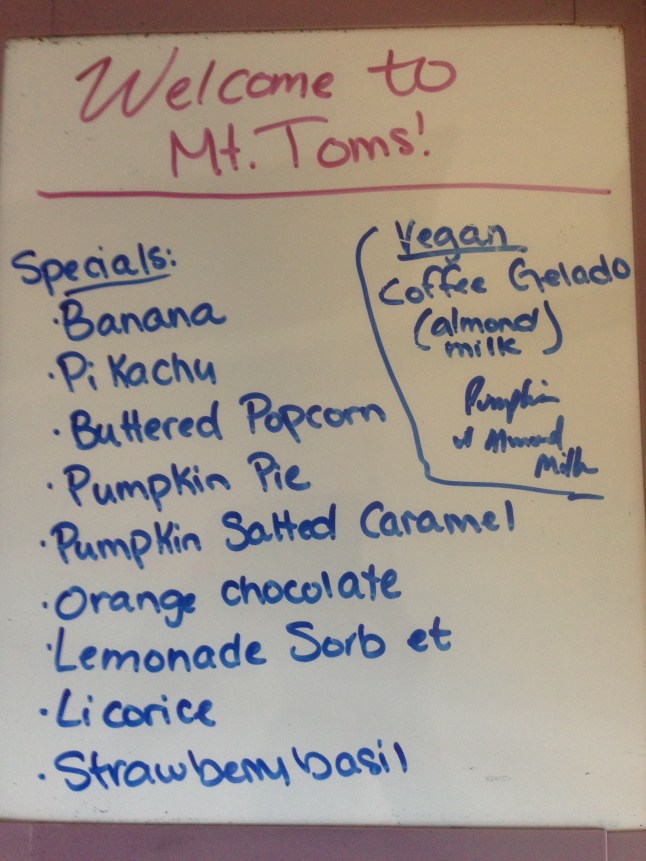 Welcome to
Mt. Toms!
Specials:
·Banana
·Pikachu
·Buttered Popcorn
·Pumpkin Pie
·Pumpkin Salted Caramel
·Orange chocolate
·Lemonade Sorbet
·Licorice
·Strawberry basil
Vegan
Coffee Gelado
(almond
milk)
Pumpkin
w Almond
Milk